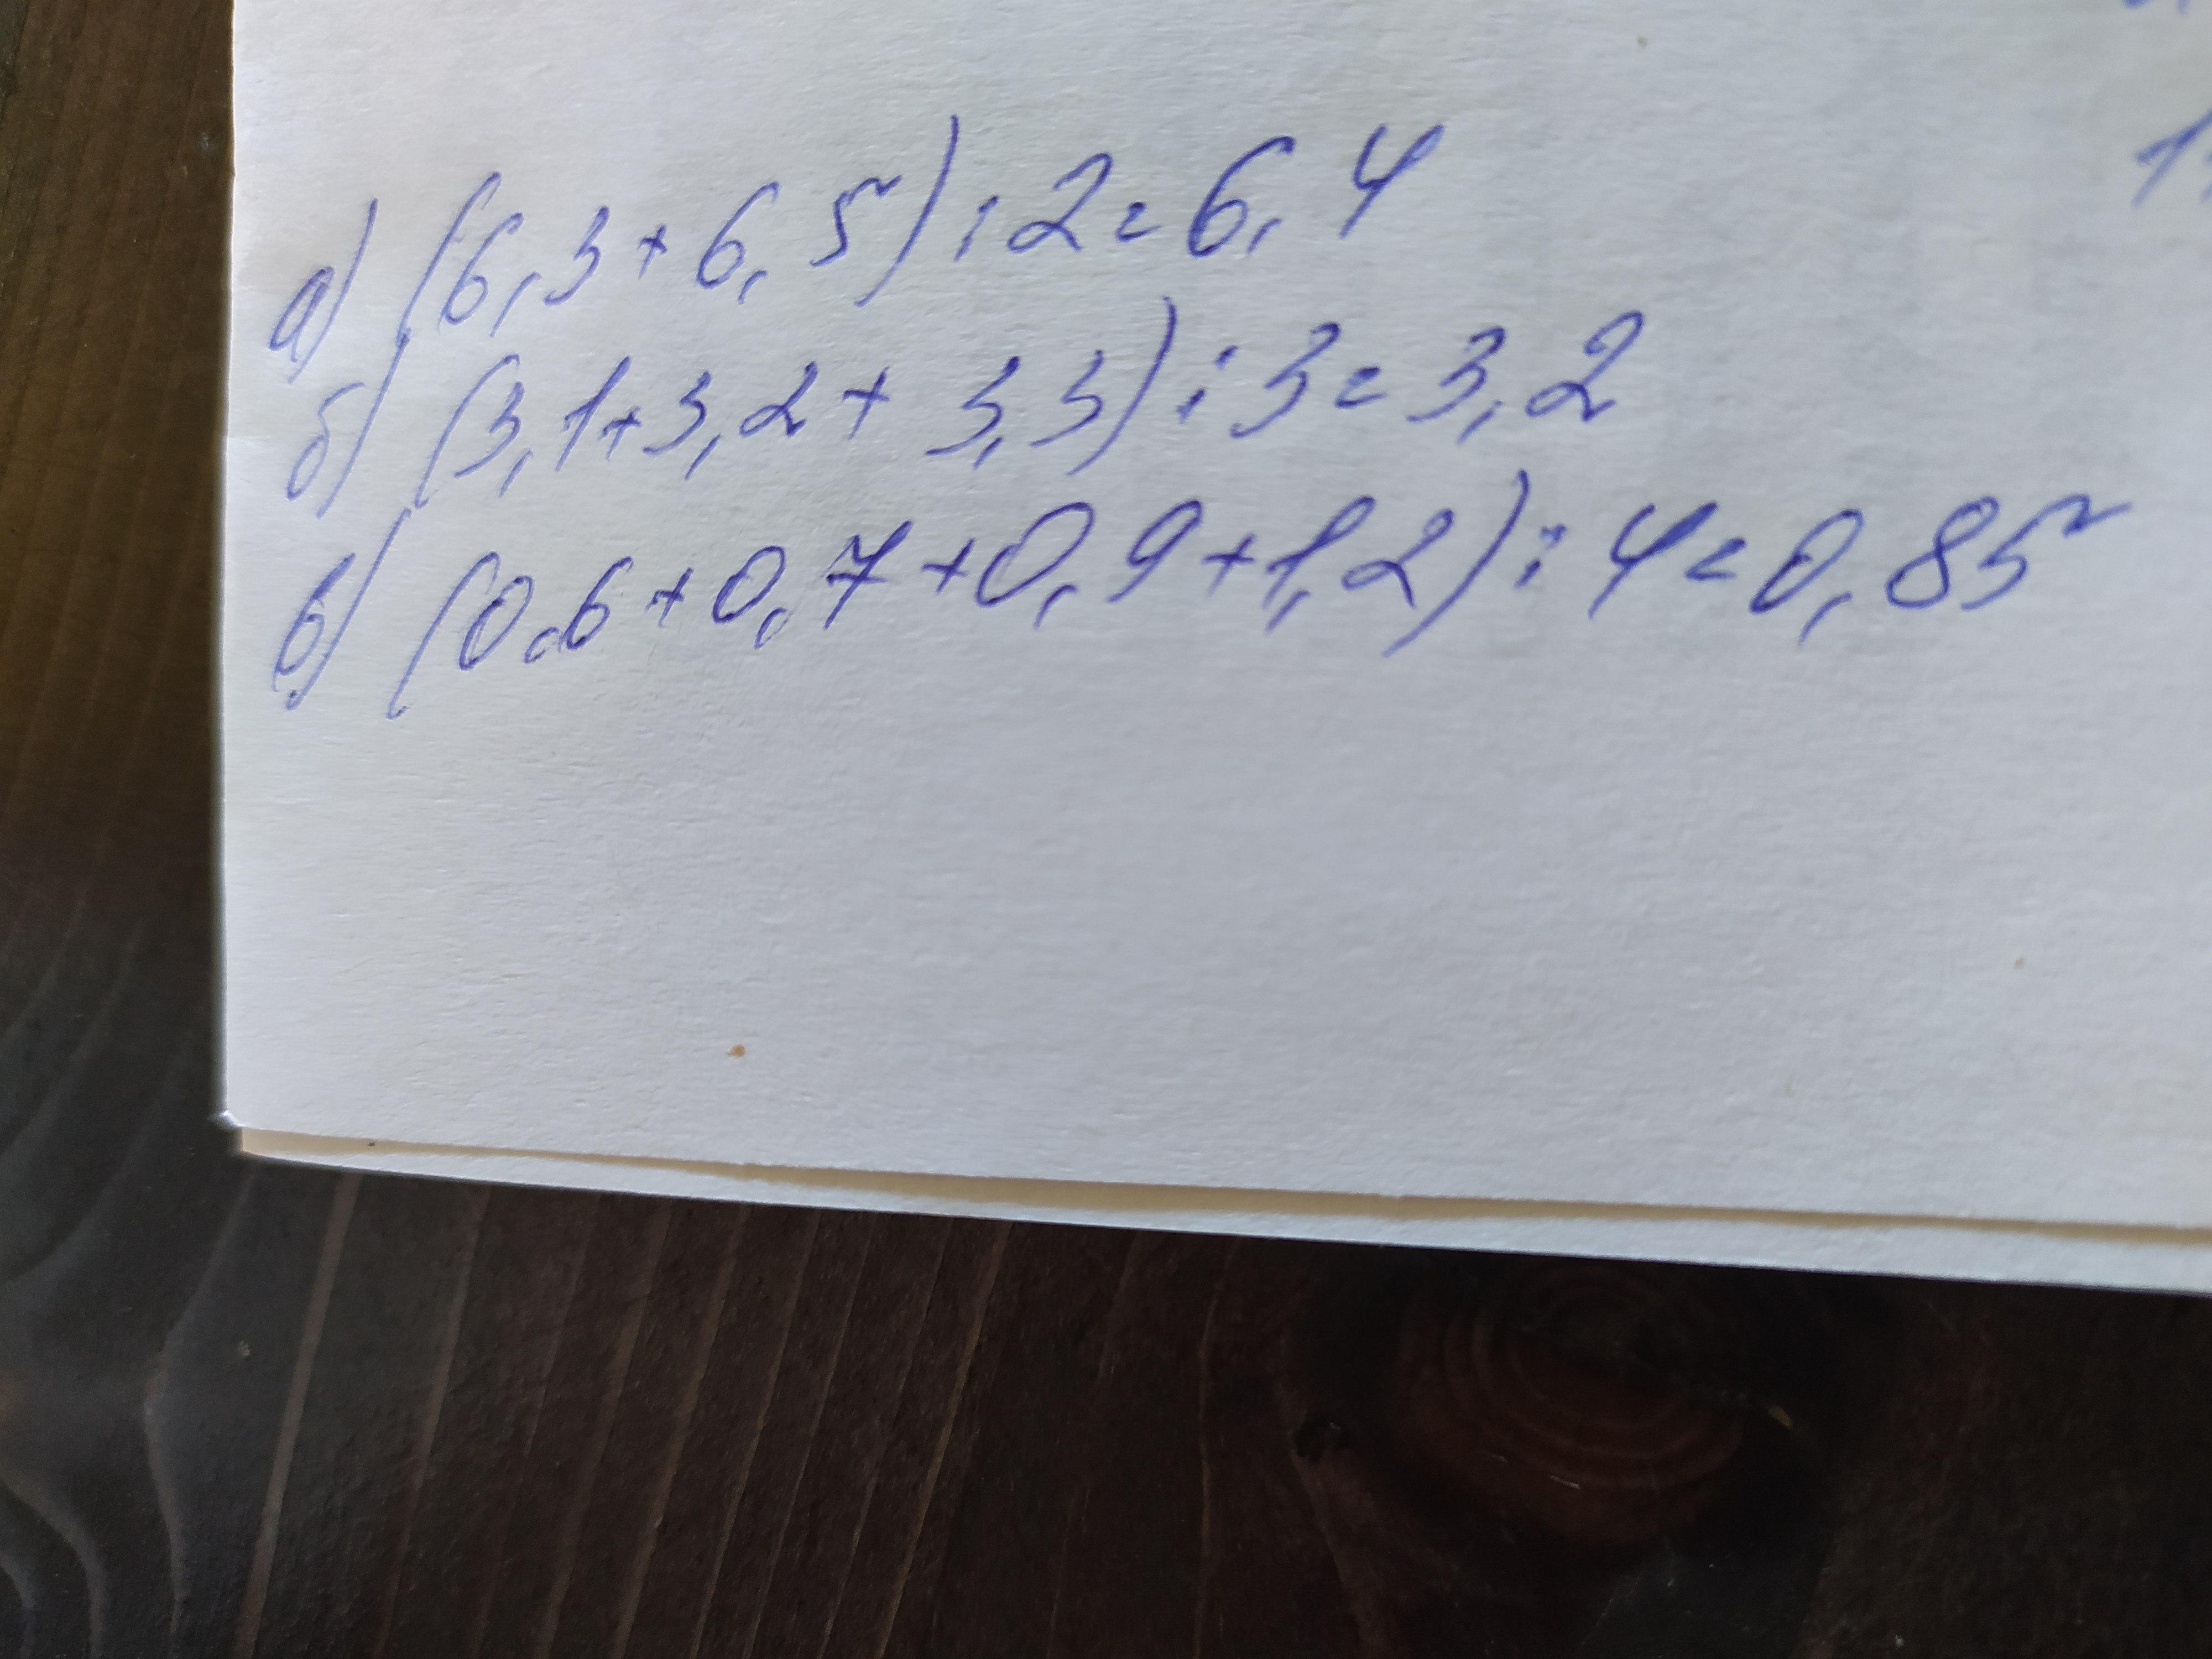 а) (6,3+6,5):2=6,4
б) (3,1+3,2+3,3):3=3,2
в) (0,6+0,7+0,9+1,2):4=0,85